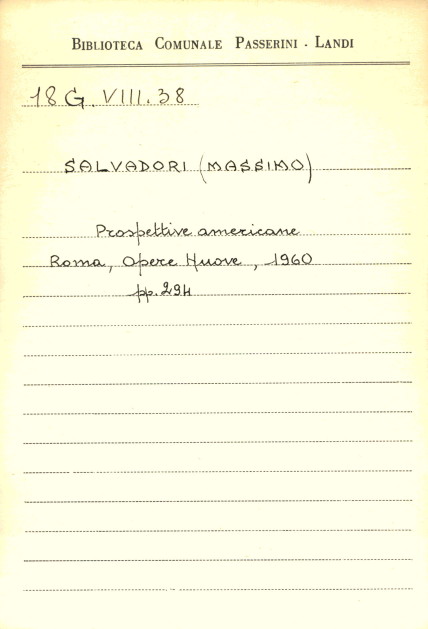 BIBLIOTECA COMUNALE PASSERINI - LANDI
18 G. VIII. 38
SALVADORI (MASSIMO)
Prospettive americane
Roma, Opere Nuove, 1960
pp. 294